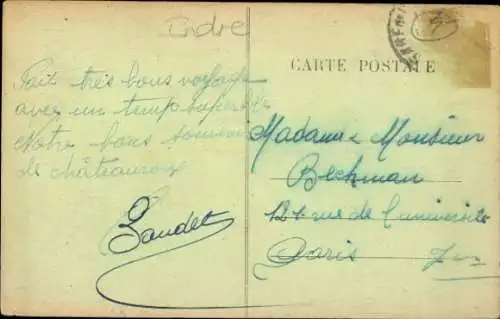 Indre
Fait très bons voyage
avec un temp superbe
Notre bons souvenir
de châteauroux
Gaudet
CARTE POSTALE
Madame Monsieur
Beckman
rue de l'université
Paris